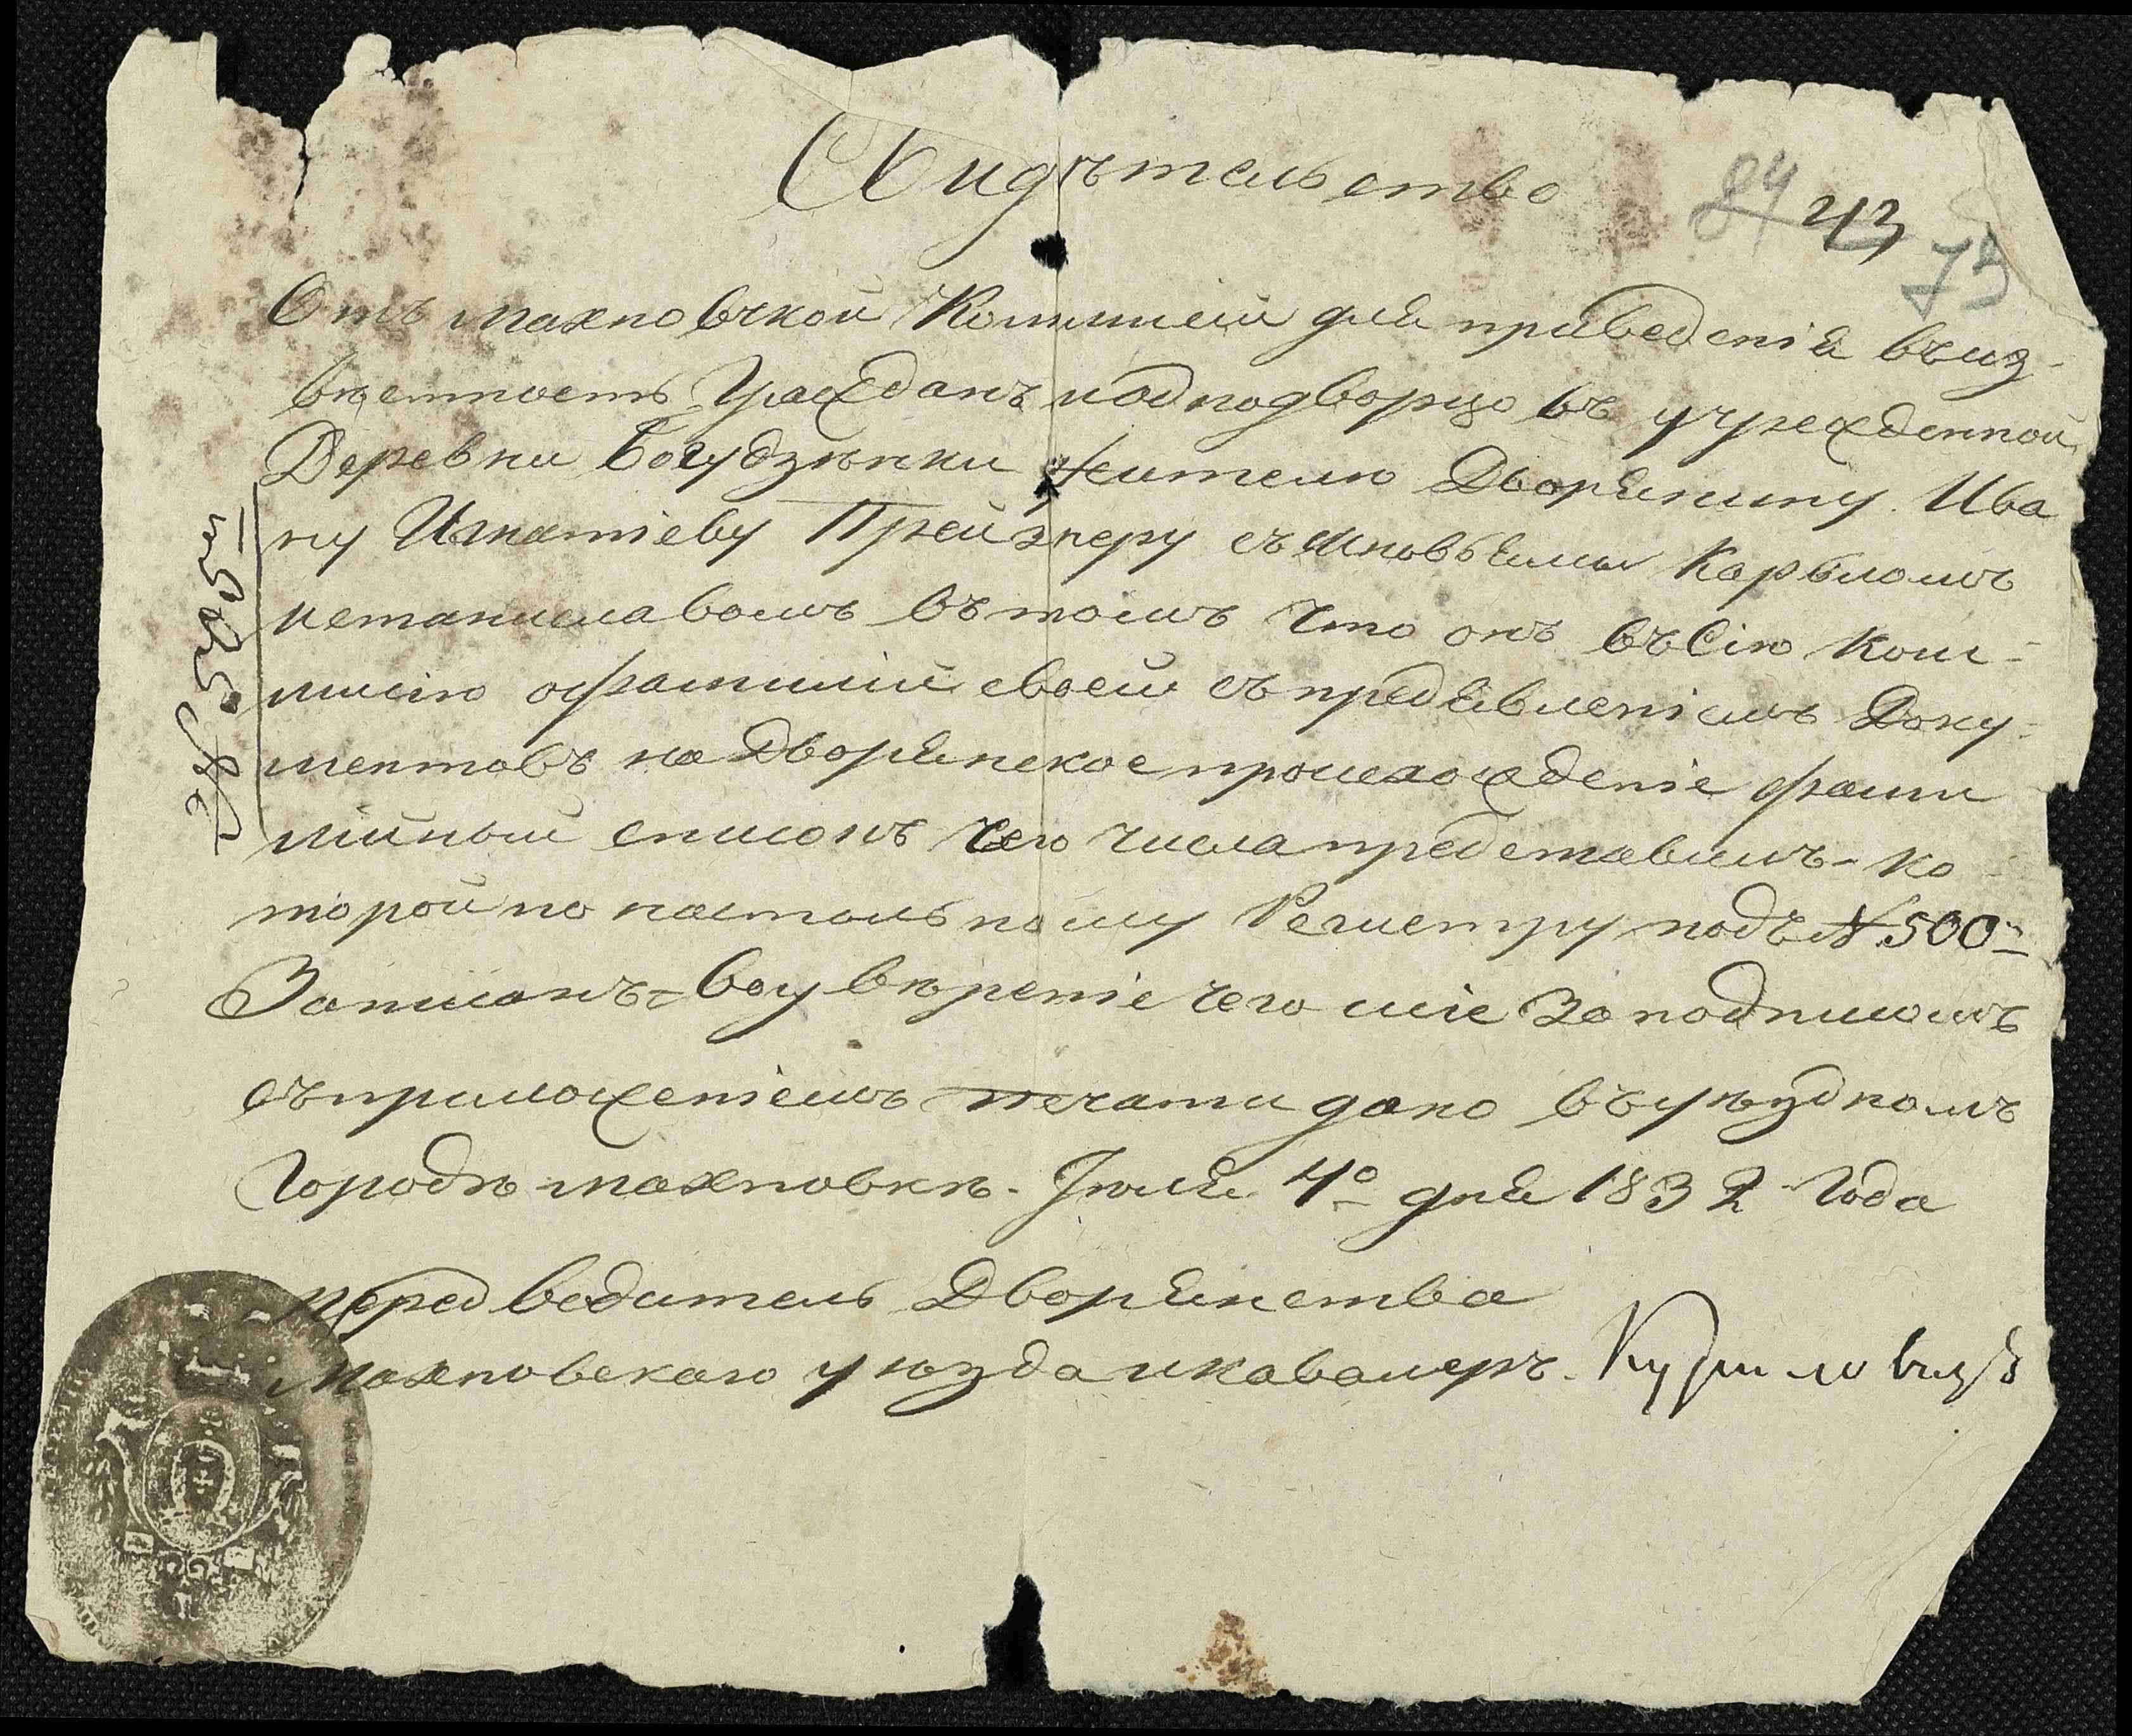 Свидѣтельство
84 43
75
Отъ махновской Коммисіи для приведенія въ из-
вѣстность Гражданъ и однодворцо въ учрежденной
Деревни жителю Дворянину Ива
ну Игнатіеву Прейзнеру съ сыновьями Карьломъ
истаниславомъ въ томъ что онъ въ Сію Ком-
мисію офамиліи своей съ предъявленіемъ Доку-
ментовъ на Дворянское происхожденіе фами
лійный списокъ сего числа представилъ- ко
торой по настольному Регистру подъ №.500
Записанъ- воувѣреніе чего сіе За подписомъ
съ приложеніемъ печати дано въ уѣздномъ
Городѣ махновкѣ. Іюля 4о дня 1832 Года
передводитель Дворянства
махновскаго уѣзда икавалеръ.
№. 500